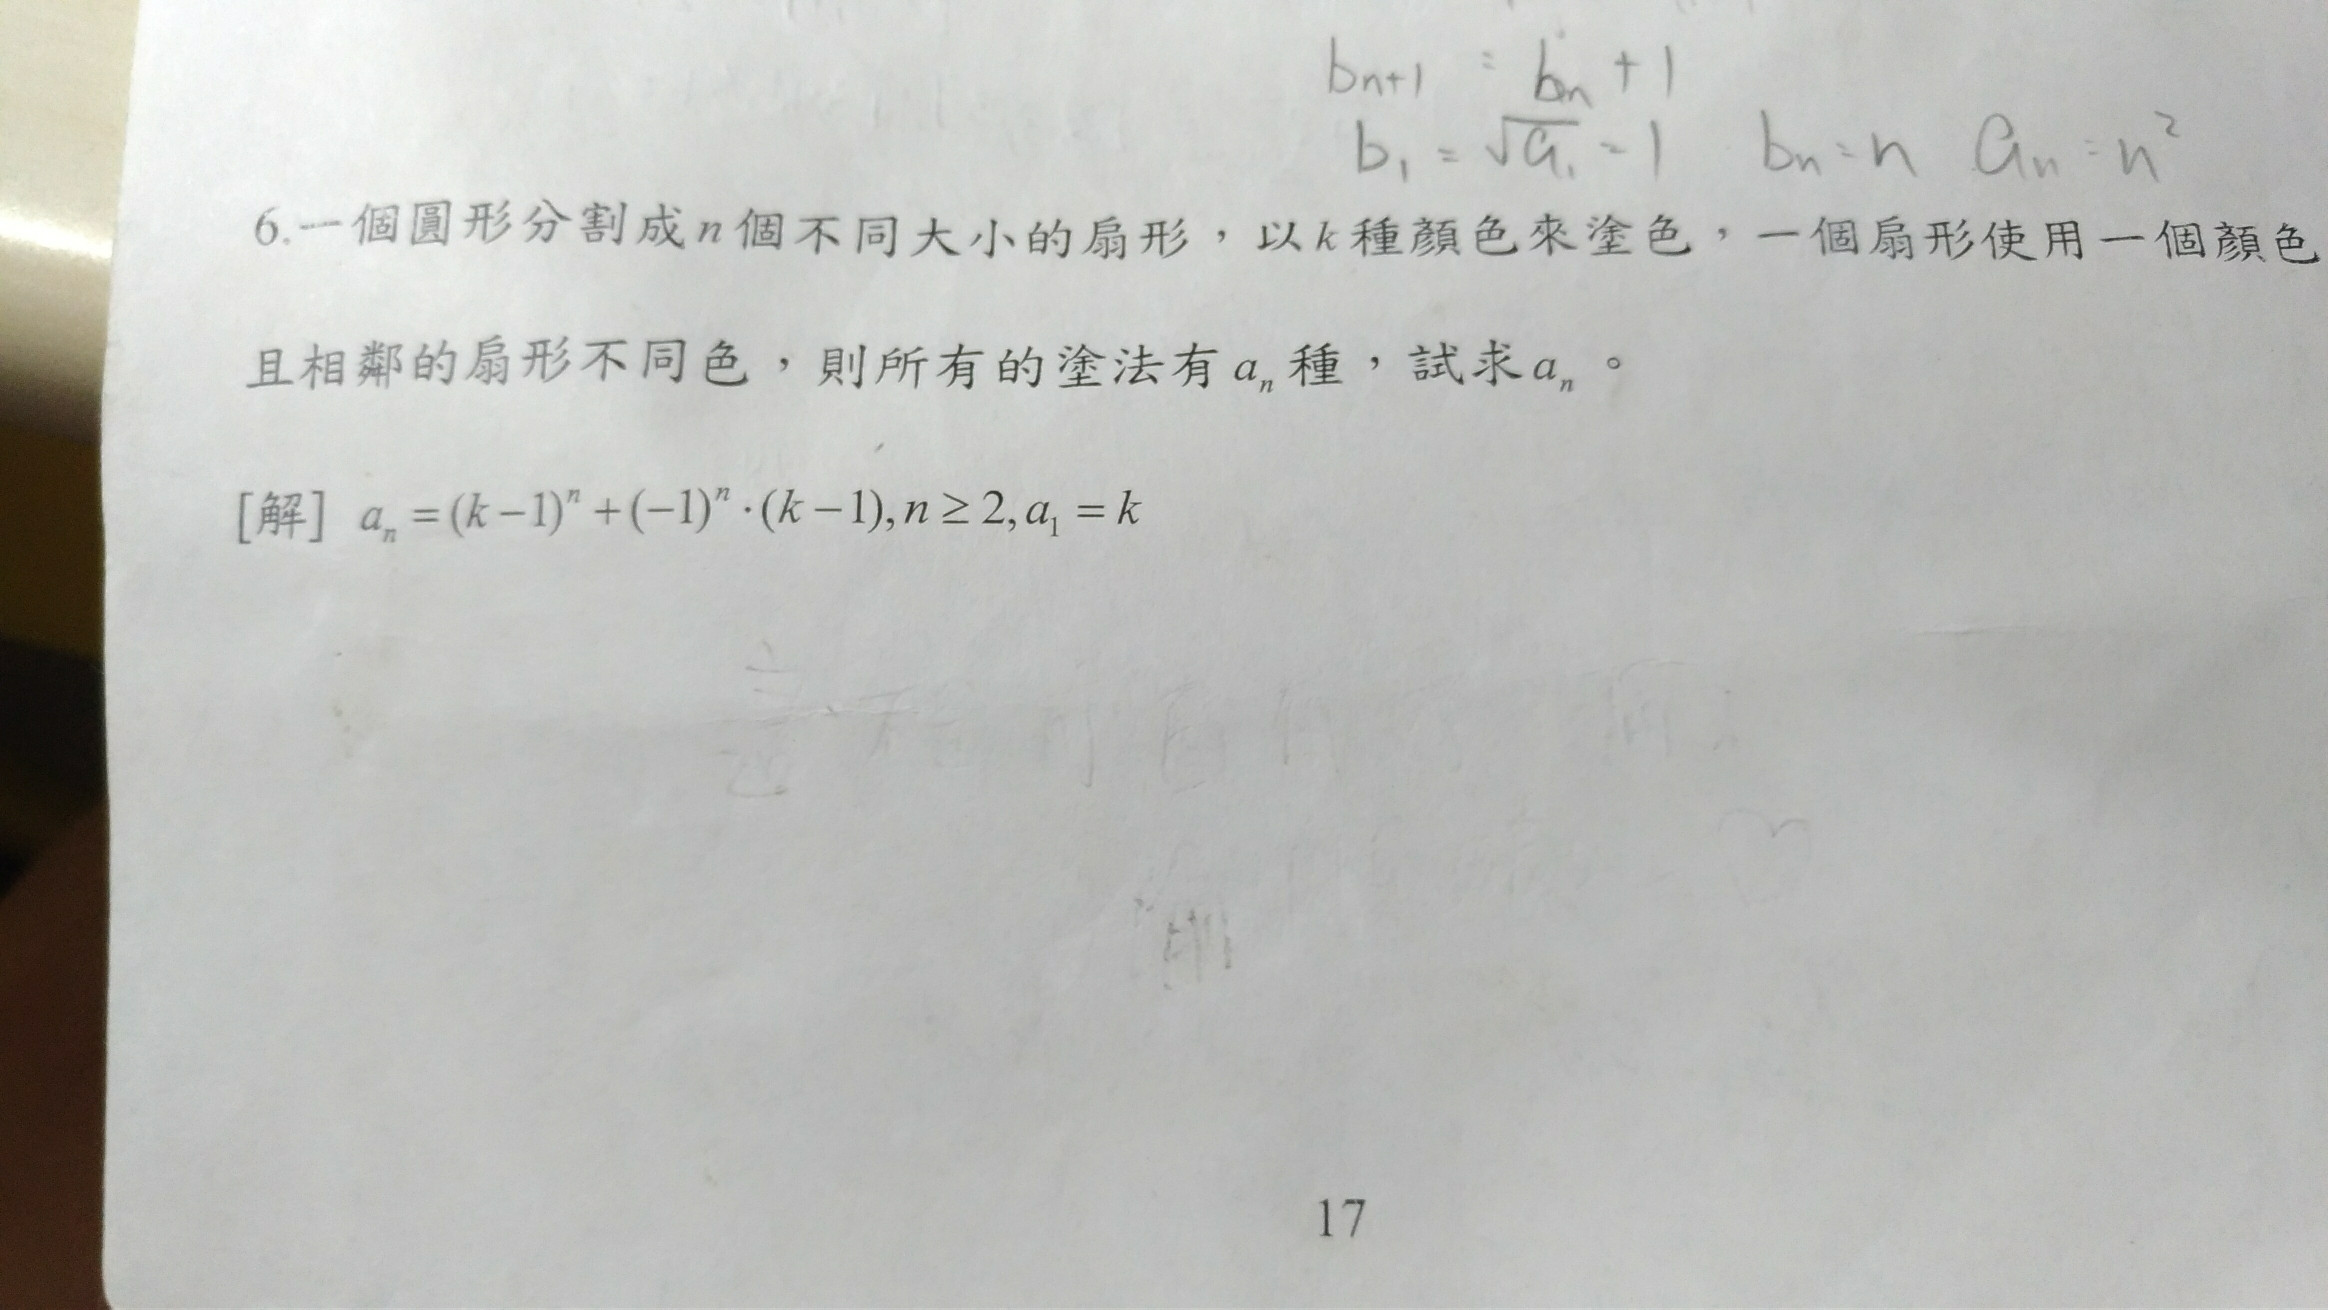 bn+1 = bn + 1
b1 = √a1 = 1 bn = n an = n²
6.一個圓形分割成n個不同大小的扇形，以k種顏色來塗色，一個扇形使用一個顏色
且相鄰的扇形不同色，則所有的塗法有an種，試求an。
[解] an = (k−1)ⁿ + (−1)ⁿ·(k−1), n ≥ 2, a1 = k
17